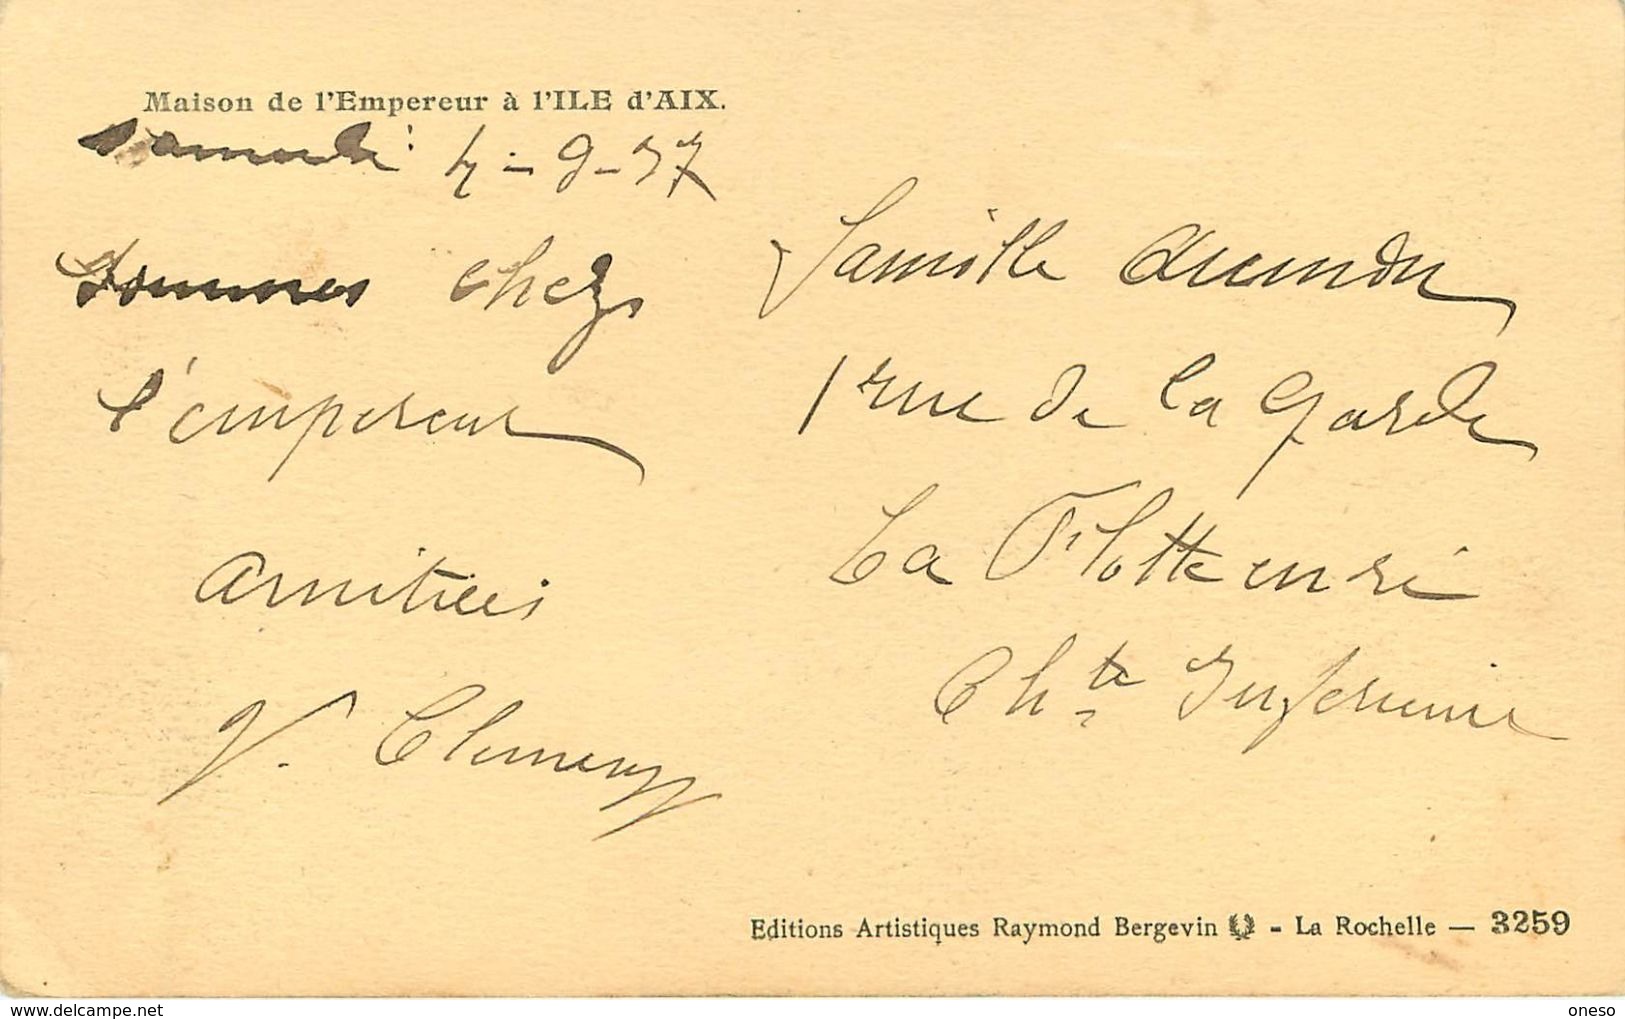 Maison de l'Empereur à l'ILE d'AIX.
Samedi 4-9-37
Sommes chez
l'empereur
Amitiés
V. Clemenz
famille
1 rue de la Garde
La Flotte en ré
Ch.te Inferieure
Editions Artistiques Raymond Bergevin - La Rochelle — 3259
www.delcampe.net
oneso